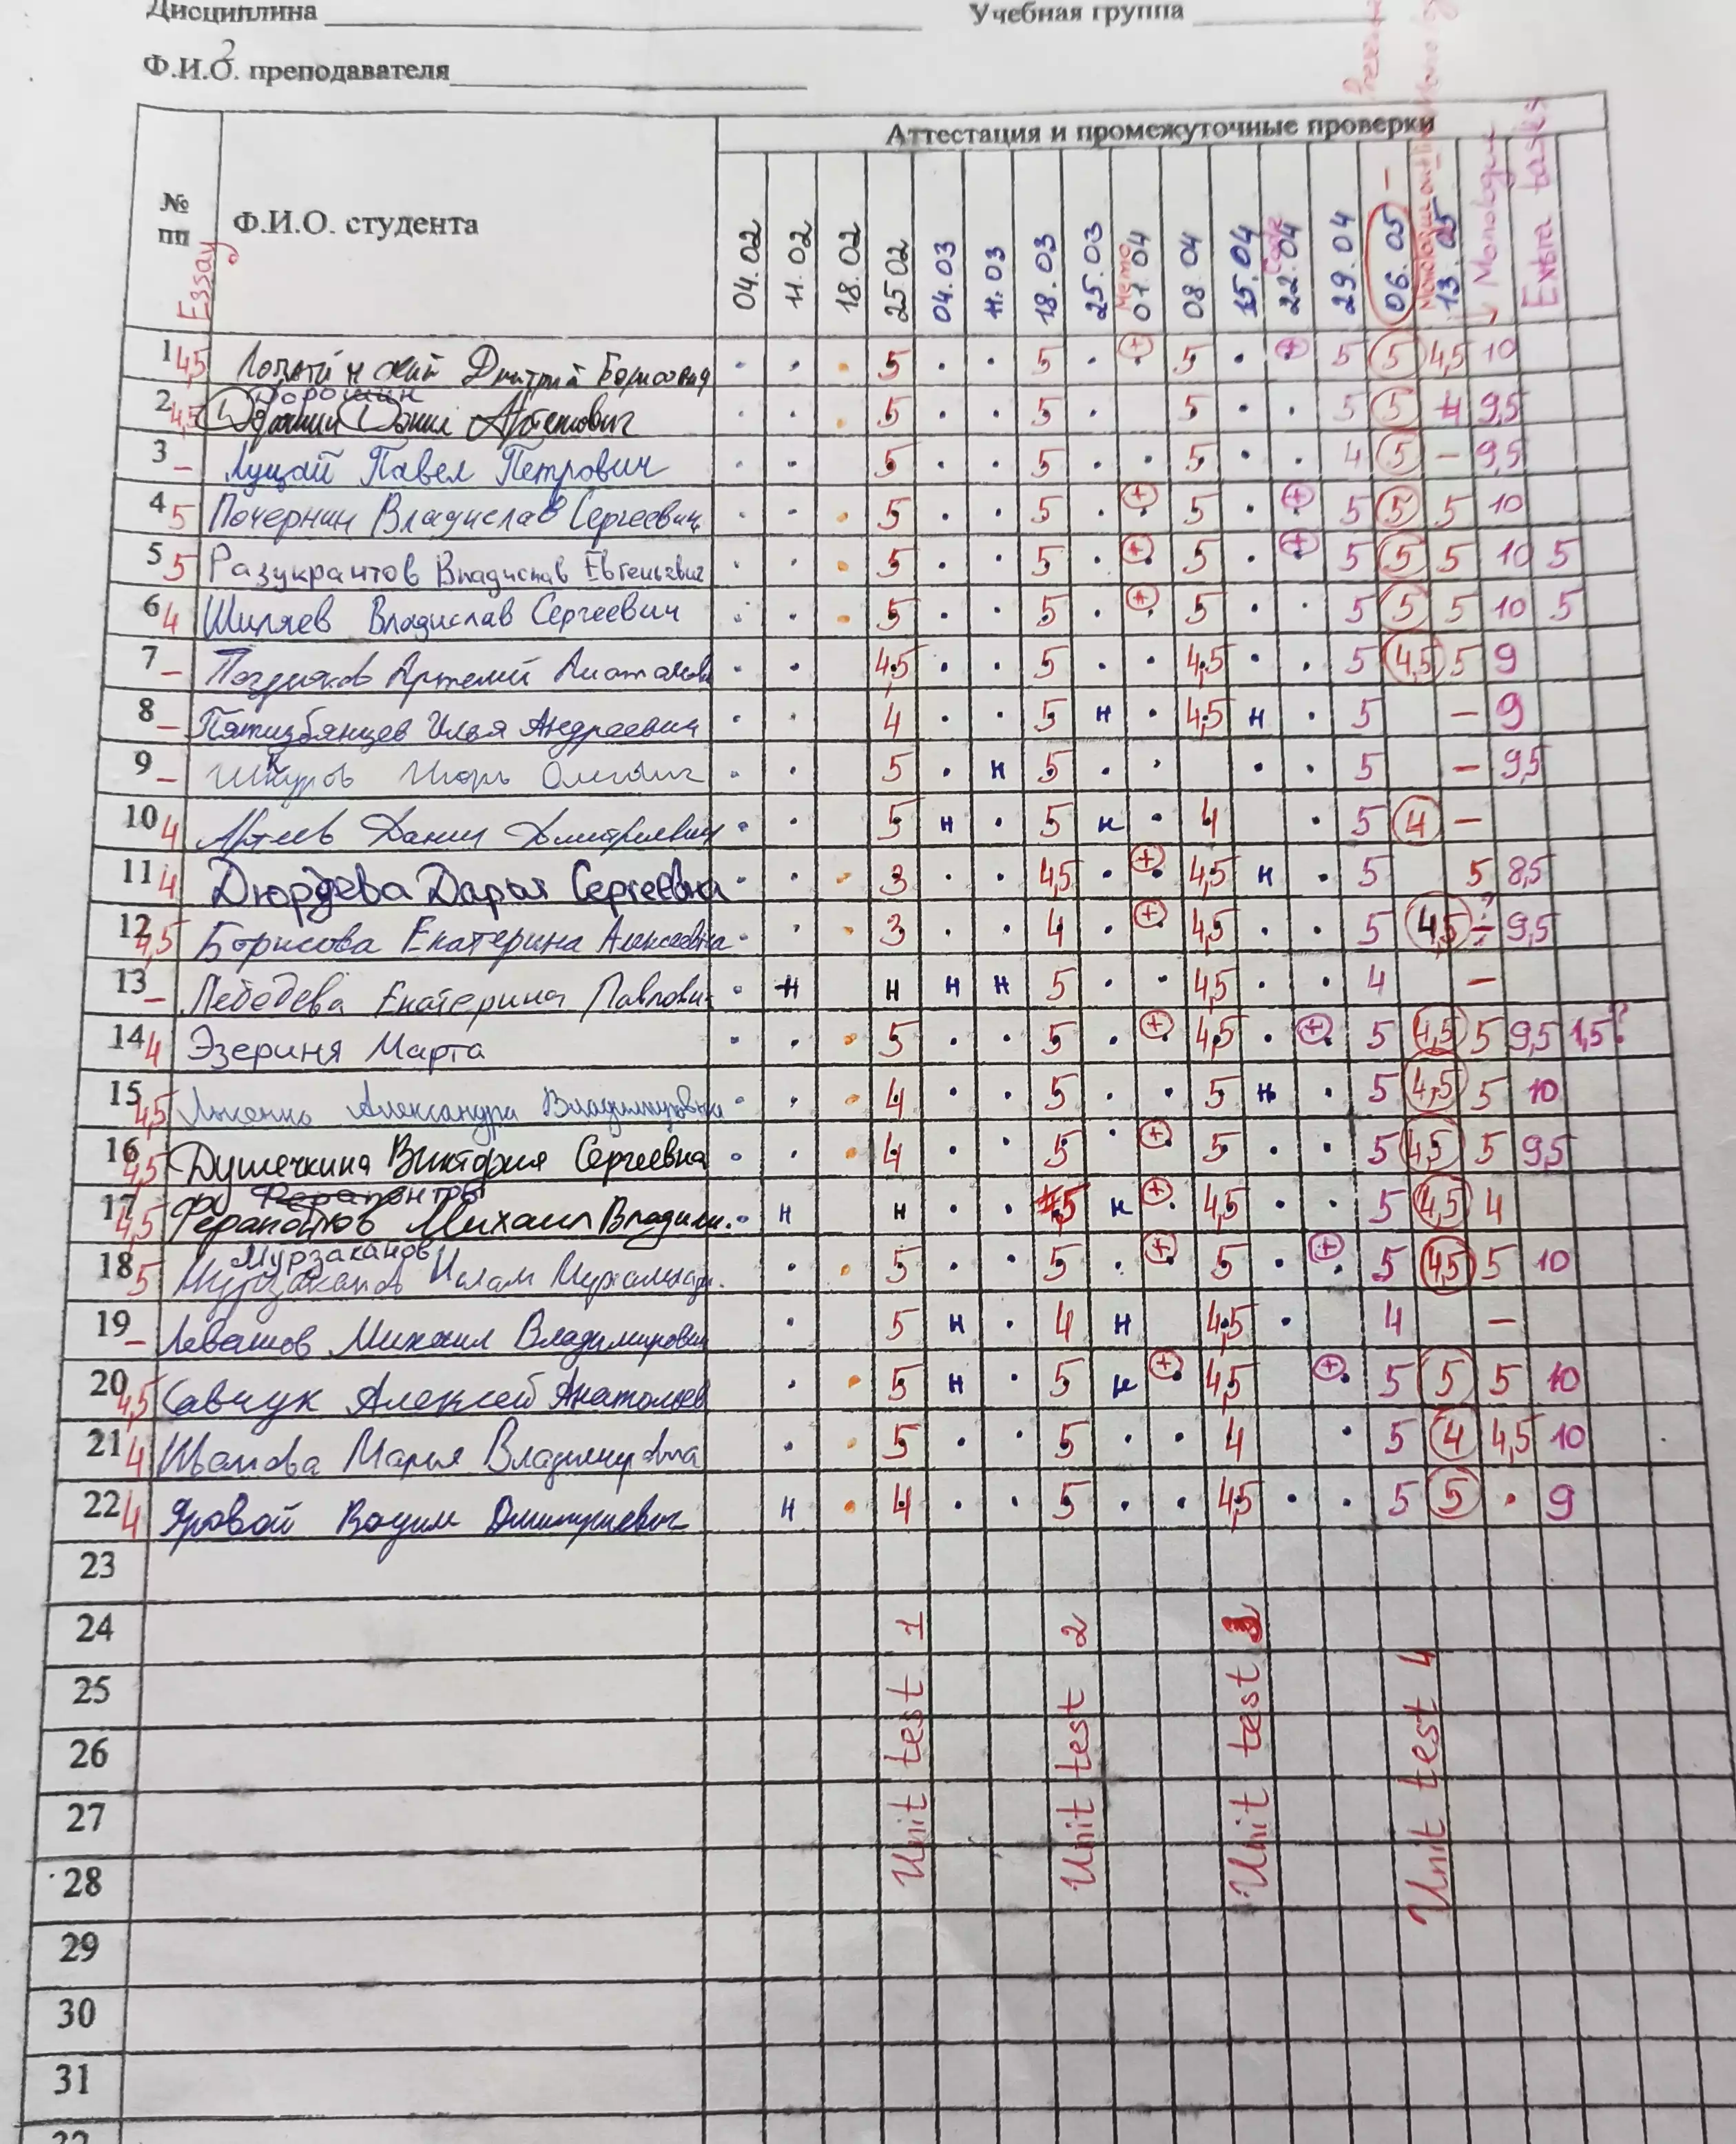 Дисциплина Учебная группа
Ф.И.О. преподавателя
Аттестация и промежуточные проверки
№ пп Essay Ф.И.О. студента 04.02 11.02 18.02 25.02 04.03 11.03 18.03 25.03 01.04 08.04 15.04 22.04 29.04 06.05 13.05 Monologue Extra tasks
1 4,5 Дмитрий Борисович · · · 5 · · 5 · + 5 · + 5 5 4,5 10
Дорошин
2 4,5 Данил Артемович · · · 5 · · 5 · 5 · · 5 5 4 9,5
3 – Луцай Павел Петрович · · 5 · · 5 · · 5 · · 4 5 – 9,5
4 5 Почернин Владислав Сергеевич · · · 5 · · 5 · + 5 · + 5 5 5 10
5 5 Разукрантов Владислав Евгеньевич · · · 5 · · 5 · + 5 · + 5 5 5 10 5
6 4 Шиляев Владислав Сергеевич · · · 5 · · 5 · + 5 · · 5 5 5 10 5
7 – Поздняков Артемий · · 4,5 · · 5 · · 4,5 · · 5 4,5 5 9
8 – Пятизбянцев Илья Андреевич · · 4 · · 5 н · 4,5 н · 5 – 9
9 – Шкуров Игорь · · 5 · н 5 · · · · 5 – 9,5
10 4 Артеев Данил Дмитриевич · · 5 н · 5 н · 4 · 5 4 –
11 4 Дюрдева Дарья Сергеевна · · · 3 · · 4,5 · + 4,5 н · 5 5 8,5
12 4,5 Борисова Екатерина Алексеевна · · · 3 · · 4 · + 4,5 · · 5 4,5 9,5
13 – Лебедева Екатерина Павловн · н н н н 5 · · 4,5 · · 4 –
14 4 Эзериня Марта · · · 5 · · 5 · + 4,5 · + 5 4,5 5 9,5 1,5?
15 4,5 Александра Владимировна · · · 4 · · 5 · · 5 н · 5 4,5 5 10
16 4,5 Душечкина Виктория Сергеевна · · · 4 · · 5 · + 5 · · 5 4,5 5 9,5
17 4,5 Ферапонтов Михаил Владим. · н н · · 4,5 н + 4,5 · · 5 4,5 4
Мурзаканов
18 5 Мурзаканов Ислам · · 5 · · 5 · + 5 · + 5 4,5 5 10
19 – Левашов Михаил Владимирович · 5 н · 4 н 4,5 · 4 –
20 4,5 Савчук Алексей Анатольев · · 5 н · 5 н + 4,5 + 5 5 5 10
21 4 Марья Владимировна · · 5 · · 5 · · 4 · 5 4 4,5 10
22 4 Яровой Вадим Дмитриевич н · 4 · · 5 · · 4,5 · · 5 5 · 9
23
24
25
26
27
28
29
30
31
Unit test 1
Unit test 2
Unit test 3
Unit test 4